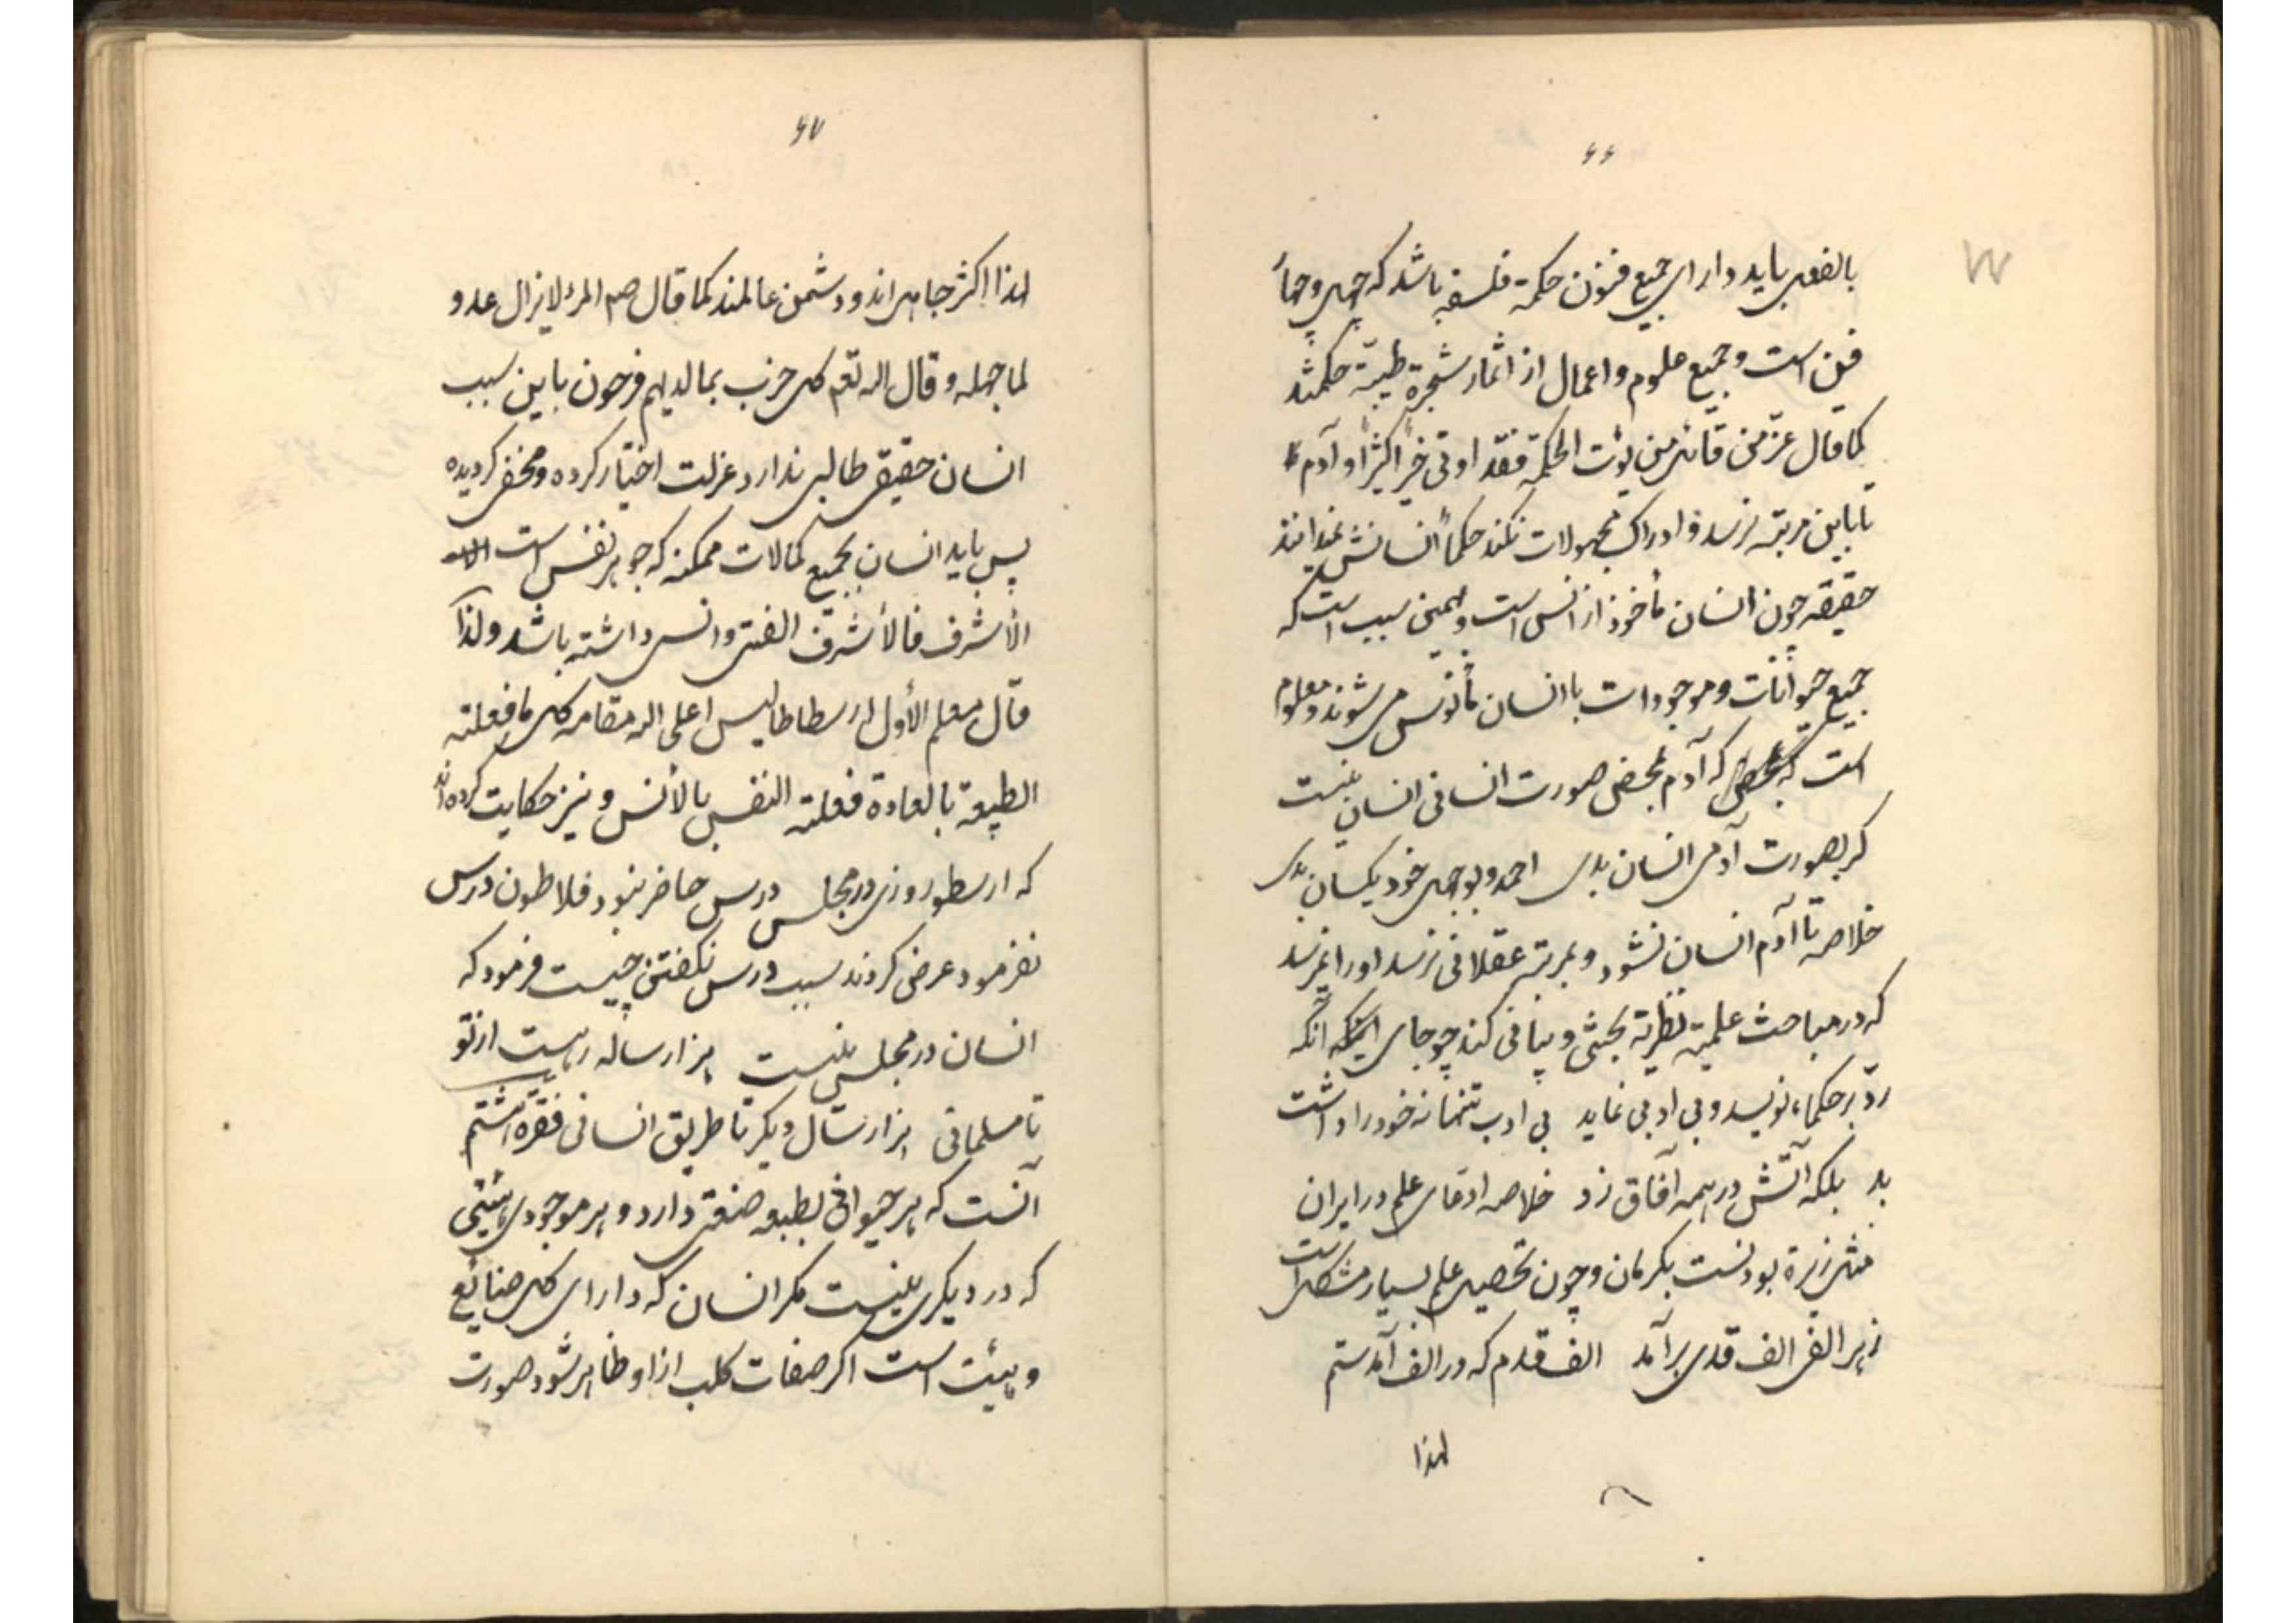 ۶۶
بالفعل باید دارای جمیع فنون حکمة فلسفه باشد که چهل و چهار
فن است و جمیع علوم و اعمال از اثمار شجرة طیبة حکمتند
کما قال عز من قائل من یؤت الحکمة فقد اوتی خیرا کثیرا و آدم
تا باین مرتبه نرسد و ادراک مجهولات نکند حکما انسانش نمیدانند
حقیقه چون انسان مأخوذ از انس است و بهمین سبب است که
جمیع حیوانات و موجودات با انسان مأنوس می شوند و معلوم
است که آدم بمحض صورت انسانی انسان نیست
کر بصورت آدمی انسان بدی احمد و بوجهل خود یکسان بدی
خلاصه تا آدم انسان نشود و بمرتبه عقلانی نرسد او را نمیرسد
که در مباحث علمیة نظریة بحثی و بیانی کند چو جای آنکه
رد بر حکماء نویسد و بی ادبی نماید بی ادب تنها نه خود را داشت
بد بلکه آتش در همه آفاق زد خلاصه ادعای علم در ایران
مثل زیرة بودنست بکرمان و چون تحصیل علم بسیار مشکل است
زهر الفی الف قدی برآمد الف قدم که در الف آمدستم
لهذا
۶۷
لهذا اکثر جاهل اند و دشمن عالمند کما قال صم المرء لایزال عدو
لما جهله و قال اله تعم کل حزب بما لدیهم فرحون باین سبب
انسان حقیقی طالبی ندارد عزلت اختیار کرده و مخفی کردیده
پس باید انسان بجمیع کمالات ممکنه که جوهر نفس است
الأشرف فالأشرف الفتی و انسی داشته باشد و لذا
قال معلم الأول ارسطاطالیس اعلی اله مقامه کل ما فعلته
الطبیعة بالعادة فعلته النفس بالأنس و نیز حکایت کرده اند
که ارسطو روزی در مجلس درس حاضر نبود فلاطون درس
نفرمود عرض کردند سبب درس نکفتن چیست فرمود که
انسان در مجلس نیست هزار ساله رهست از تو
تا مسلمانی هزار سال دیکر تا طریق انسانی فقره هشتم
آنست که هر حیوانی بطبعه صنعتی دارد و هر موجودی هیئتی
که در دیکری نیست مکر انسان که دارای کل صنایع
و هیئت است اکر صفات کلب از او ظاهر شود صورت